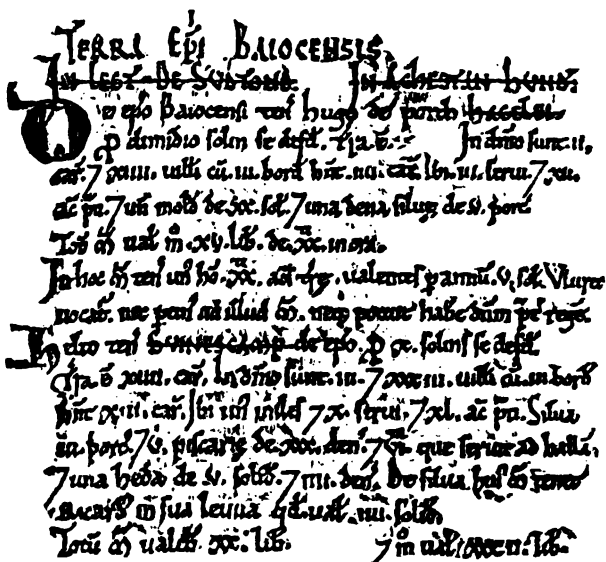 TERRA EPI BAIOCENSIS
IN LEST DE SUDTONE IN ACHESTAN HUND
De epo Baiocensi ten hugo de porth
p dimidio solin se defd. Tra. e. In dnio sunt. ii.
car. 7 xiiii. uilli cu. iii. bord hnt. iiii. car. Ibi. iii. serui. 7 xii.
ac pti. 7 un molin de xx. sol. 7 una dena siluę de v. porc
Tot m ual m. xv. lib. de xx. in ora.
In hoc m ten un ho. xx. ac ualentes p annu. v. sol. Vluret
uocat. nec ptin ad illud m. neq potuit habe dnm pt rege.
ten de epo. p solins se defd
Tra. e xiiii. car. In dnio sunt. iii. 7 xxxiii. uilli cu. iii. bord
hnt xiii. car. Ibi 7 x. serui. 7 xl. ac pti. Silua
porc. 7 v. piscarię de xxx. den. 7 que seruit ad halla.
7 una heda de v. solid. 7 iiii. den. De silua hui m
in sua leuua qd ual. iiii. solid.
Totu m ualeb. xx. lib. 7 m ual